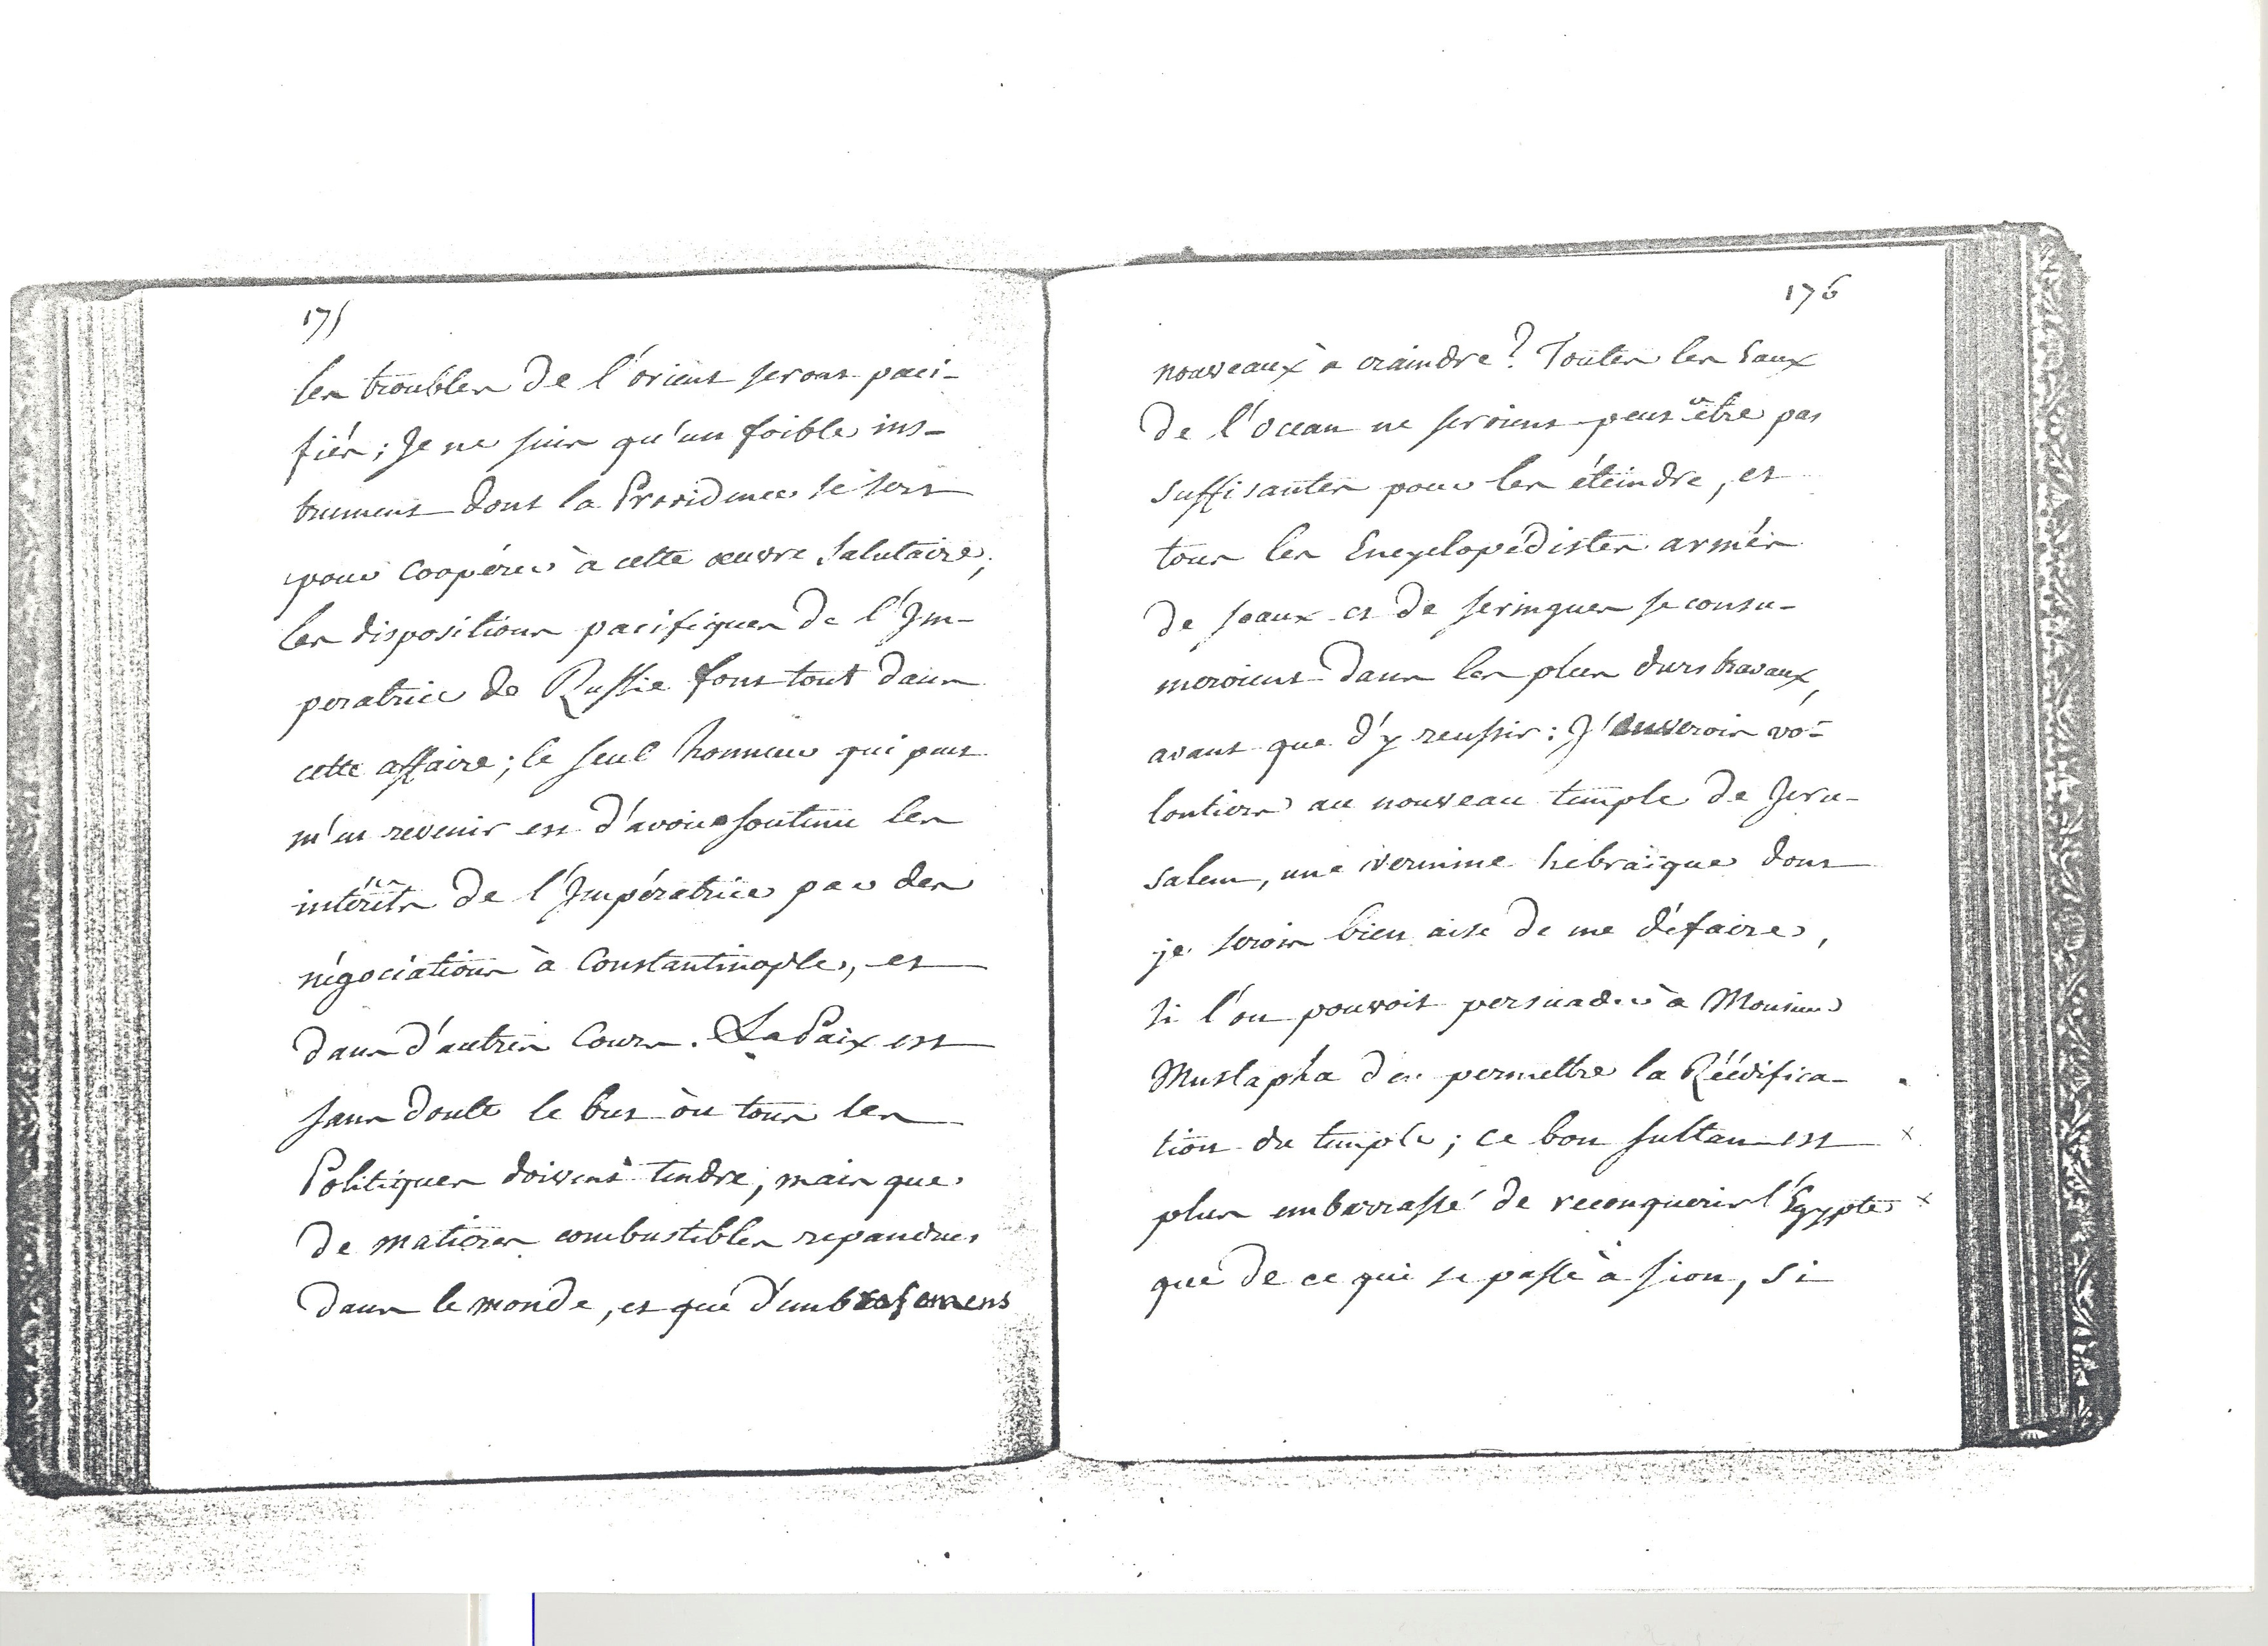 175
les troubles de l'orient seront paci-
fiés; Je ne suis qu'un foible ins-
trument dont la Providence se sert
pour Coopérer à cette œuvre salutaire;
les dispositions pacifiques de l'Im-
peratrice de Russie font tout dans
cette affaire; le seul honneur qui peut
m'en revenir est d'avoir soutenu les
intérêts de l'Impératrice par des
négociations à Constantinople, et
dans d'autres Cours. La Paix est
sans doute le but où tous les
Politiques doivent tendre; mais que
de matieres combustibles repandues
dans le monde, et que d'embrasemens
176
nouveaux à craindre? Toutes les Eaux
de l'Ocean ne seroient peut être pas
suffisantes pour les éteindre, et
tous les Encyclopédistes armés
de seaux et de seringues se consu-
meroient dans les plus durs travaux,
avant que d'y reussir: J'enverois vo-
lontiers au nouveau temple de Jeru-
salem, une vermine hébraïque dont
je serois bien aise de me défaire,
si l'on pouvoit persuader à Monsieur
Mustapha d'en permettre la Réédifica-
tion du temple; ce bon sultan est
plus embarrassé de reconquerir l'Egypte
que de ce qui se passe à sion, si